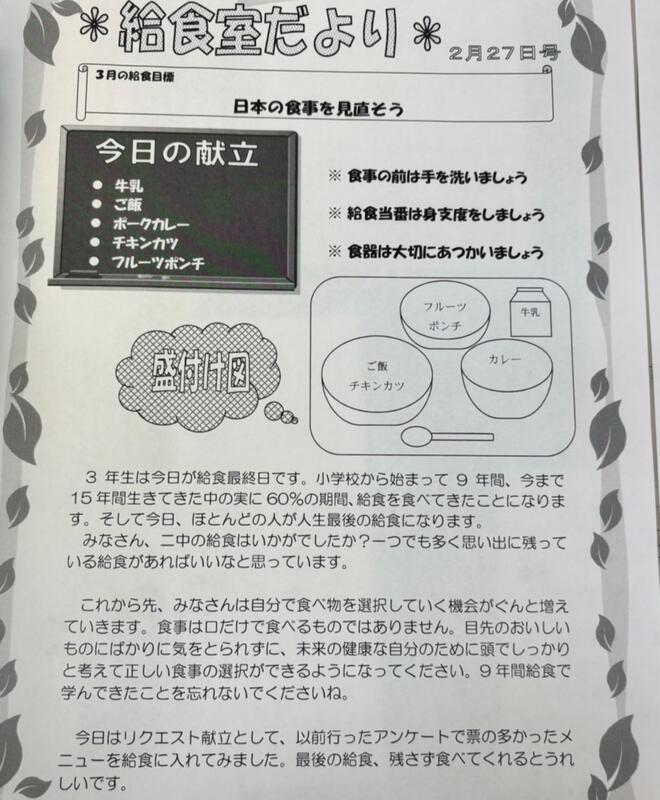 ＊給食室だより＊
2月27日号
3月の給食目標
日本の食事を見直そう
今日の献立
● 牛乳
● ご飯
● ポークカレー
● チキンカツ
● フルーツポンチ
※ 食事の前は手を洗いましょう
※ 給食当番は身支度をしましょう
※ 食器は大切にあつかいましょう
盛付け図
フルーツ
ポンチ
牛乳
ご飯
チキンカツ
カレー
3年生は今日が給食最終日です。小学校から始まって9年間、今まで
15年間生きてきた中の実に60%の期間、給食を食べてきたことになりま
す。そして今日、ほとんどの人が人生最後の給食になります。
みなさん、二中の給食はいかがでしたか？一つでも多く思い出に残って
いる給食があればいいなと思っています。
これから先、みなさんは自分で食べ物を選択していく機会がぐんと増え
ていきます。食事は口だけで食べるものではありません。目先のおいしい
ものにばかりに気をとられずに、未来の健康な自分のために頭でしっかり
と考えて正しい食事の選択ができるようになってください。9年間給食で
学んできたことを忘れないでくださいね。
今日はリクエスト献立として、以前行ったアンケートで票の多かったメ
ニューを給食に入れてみました。最後の給食、残さず食べてくれるとうれ
しいです。